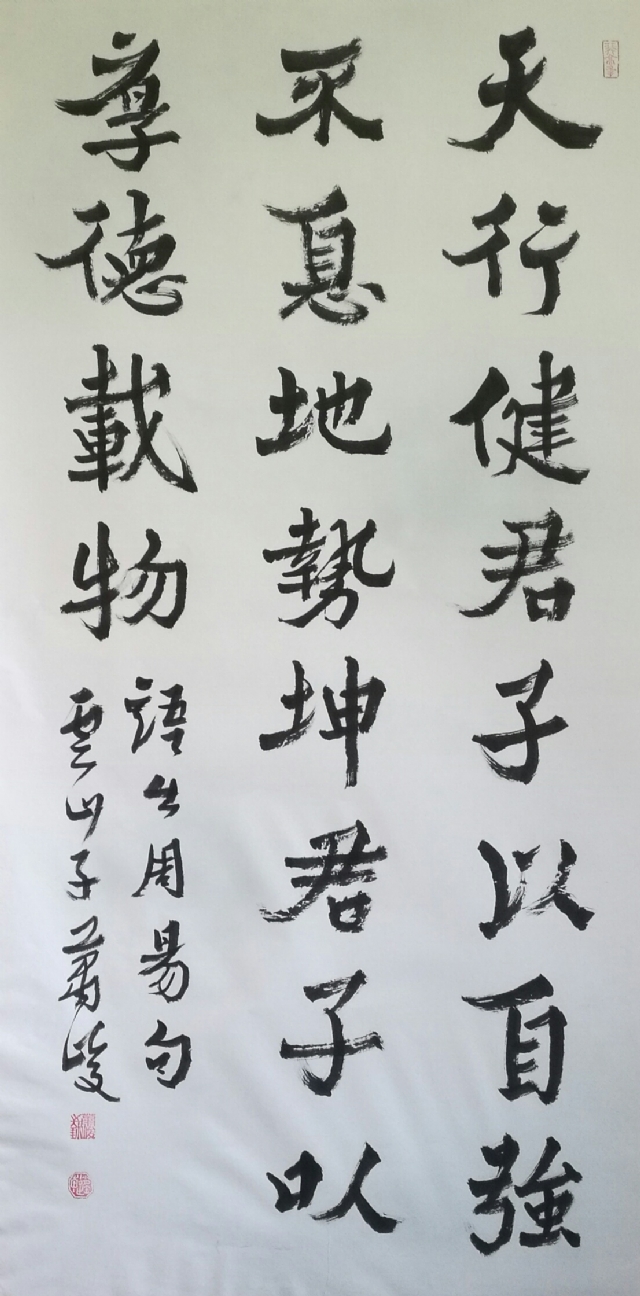 天行健君子以自強
不息地勢坤君子以
厚德載物
語出周易句
雲山子蕭峻